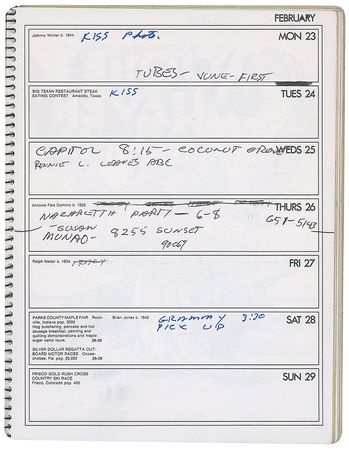 FEBRUARY
Johnny Winter b. 1944
KISS Photo.
MON 23
TUBES - JUNE - FIRST
BIG TEXAN RESTAURANT STEAK
EATING CONTEST Amarillo, Texas
KISS
TUES 24
CAPITOL 8:15 - COCONUT GROVE
WEDS 25
RONNIE L. LEAVES ABC
Antoine Fats Domino b. 1928
THURS 26
NAZARETH PARTY - 6-8
657-5143
SUSAN
MUNAO - 8255 SUNSET
90067
Ralph Nader b. 1934
FRI 27
PARKE COUNTY MAPLE FAIR Rock-
ville, Indiana pop. 3000
Hog butchering, pancake and hot
sausage breakfast, painting and
quilting demonstrations and maple
sugar camp tours. 28-29
Brian Jones b. 1942
GRAMMY 3:30
PICK UP
SAT 28
SILVER DOLLAR REGATTA OUT-
BOARD MOTOR RACES Okeee-
chobee, Fla. pop. 20,000 28-29
FRISCO GOLD RUSH CROSS
COUNTRY SKI RACE
Frisco, Colorado pop. 450
SUN 29